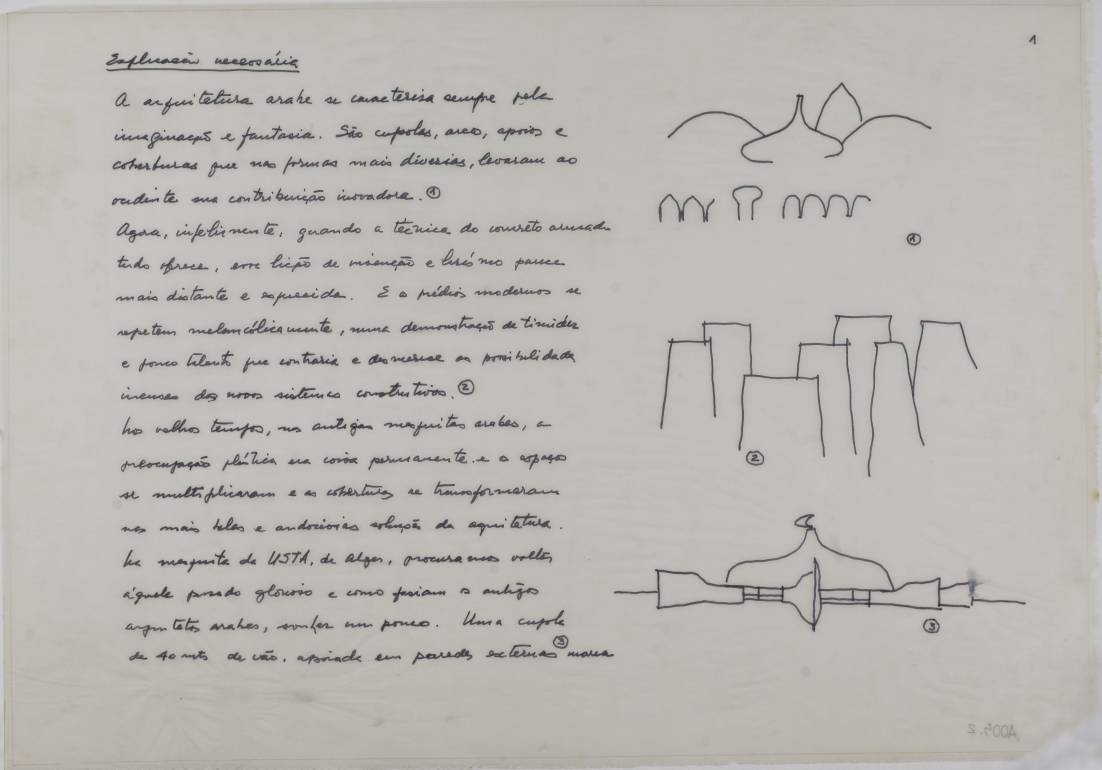 1
Explicação necessária
A arquitetura arabe se caracterisa sempre pela
imaginação e fantasia. São cupolas, arcos, apoios e
coberturas que nas formas mais diversas, levaram ao
ocidente sua contribuição inovadora. ①
Agora, infelismente, quando a técnica do concreto armado
tudo oferece, essa lição de invenção e lirismo parece
mais distante e esquecida. E os prédios modernos se
repetem melancólicamente, numa demonstração de timidez
e pouco talento que contraria e desmerece as possibilidades
imensas dos novos sistemas construtivos. ②
Nos velhos tempos, nas antigas mesquitas arabes, a
preocupação plástica era coisa permanente e os espaços
se multiplicaram e as coberturas se transformaram
nas mais belas e audaciosas soluções da arquitetura.
Na mesquita da USTA, de Alger, procuramos voltar
áquele passado glorioso e como faziam os antigos
arquitetos arabes, sonhar um pouco. Uma cupola
de 40 mts de vão, apoiada em paredes externas ③ marca
①
②
③
A005.2